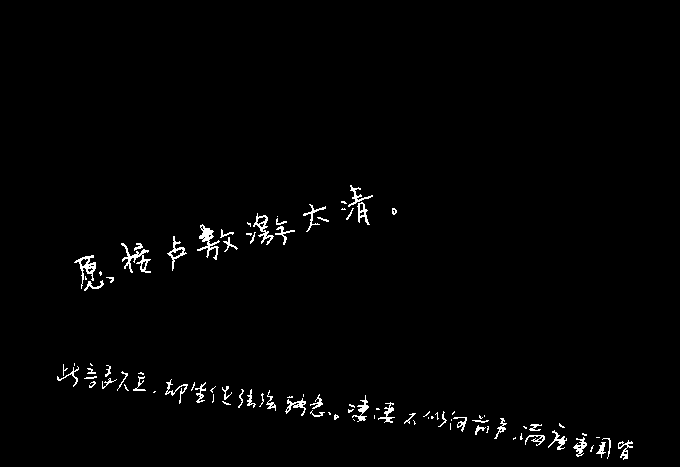 愿接卢敖游太清。
此言良久立,却坐促弦弦转急。凄凄不似向前声,满座重闻皆